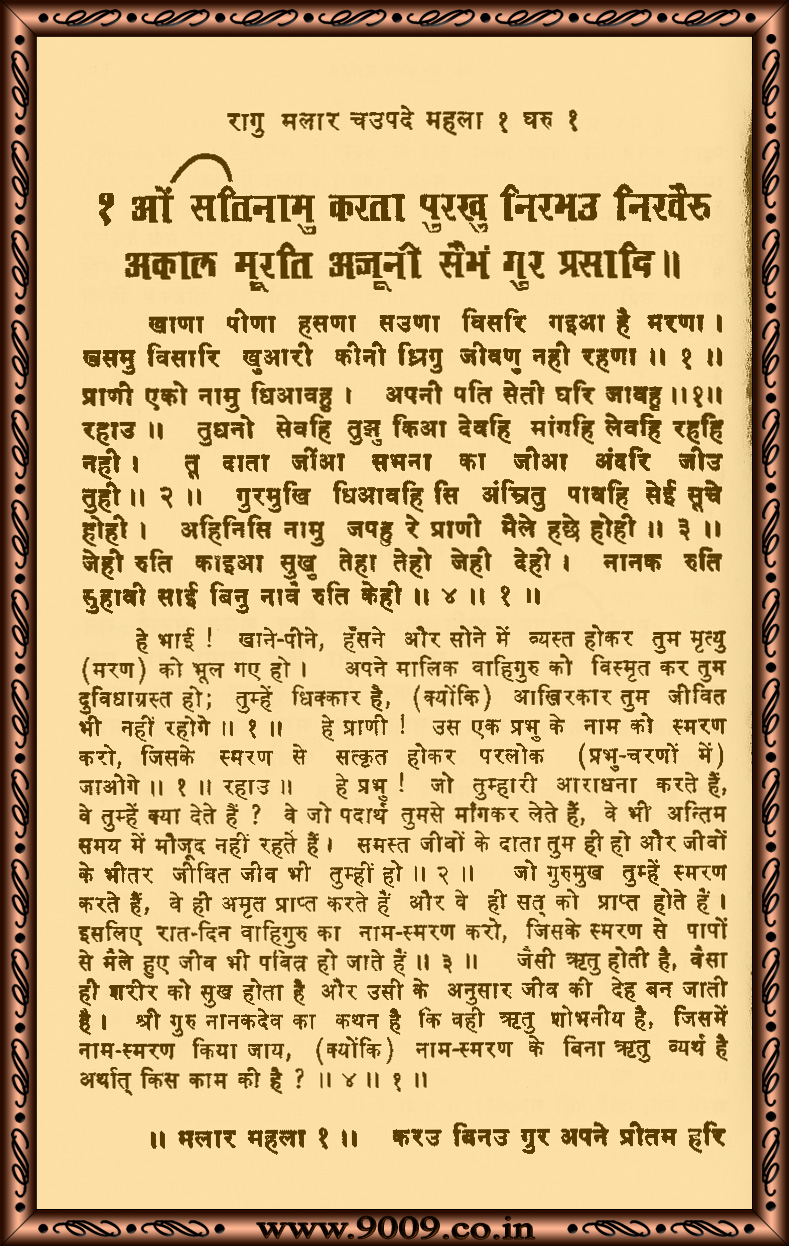 रागु मलार चउपदे महला १ घरु १
१ ओं सतिनामु करता पुरखु निरभउ निरवैरु
अकाल मूरति अजूनी सैभं गुर प्रसादि॥
खाणा पीणा हसणा सउणा विसरि गइआ है मरणा।
खसमु विसारि खुआरी कीनी ध्रिगु जीवणु नही रहणा॥ १ ॥
प्राणी एको नामु धिआवहु। अपनी पति सेती घरि जावहु॥१॥
रहाउ॥ तुधनो सेवहि तुझु किआ देवहि मांगहि लेवहि रहहि
नही। तू दाता जीआ सभना का जीआ अंदरि जीउ
तुही॥ २ ॥ गुरमुखि धिआवहि सि अंम्रितु पावहि सेई सूचे
होही। अहिनिसि नामु जपहु रे प्राणी मैले हछे होही॥ ३ ॥
जेही रुति काइआ सुखु तेहा तेहो जेही देही। नानक रुति
सुहावी साई बिनु नावै रुति केही॥ ४ ॥ १ ॥
हे भाई! खाने-पीने, हँसने और सोने में व्यस्त होकर तुम मृत्यु
(मरण) को भूल गए हो। अपने मालिक वाहिगुरु को विस्मृत कर तुम
दुविधाग्रस्त हो; तुम्हें धिक्कार है, (क्योंकि) आखिरकार तुम जीवित
भी नहीं रहोगे॥ १ ॥ हे प्राणी! उस एक प्रभु के नाम को स्मरण
करो, जिसके स्मरण से सत्कृत होकर परलोक (प्रभु-चरणों में)
जाओगे॥ १ ॥ रहाउ॥ हे प्रभु! जो तुम्हारी आराधना करते हैं,
वे तुम्हें क्या देते हैं? वे जो पदार्थ तुमसे माँगकर लेते हैं, वे भी अन्तिम
समय में मौजूद नहीं रहते हैं। समस्त जीवों के दाता तुम ही हो और जीवों
के भीतर जीवित जीव भी तुम्हीं हो॥ २ ॥ जो गुरुमुख तुम्हें स्मरण
करते हैं, वे ही अमृत प्राप्त करते हैं और वे ही सत् को प्राप्त होते हैं।
इसलिए रात-दिन वाहिगुरु का नाम-स्मरण करो, जिसके स्मरण से पापों
से मैले हुए जीव भी पवित्र हो जाते हैं॥ ३ ॥ जैसी ऋतु होती है, वैसा
ही शरीर को सुख होता है और उसी के अनुसार जीव की देह बन जाती
है। श्री गुरु नानकदेव का कथन है कि वही ऋतु शोभनीय है, जिसमें
नाम-स्मरण किया जाय, (क्योंकि) नाम-स्मरण के बिना ऋतु व्यर्थ है
अर्थात् किस काम की है?॥ ४ ॥ १ ॥
॥ मलार महला १ ॥ करउ बिनउ गुर अपने प्रीतम हरि
www.9009.co.in